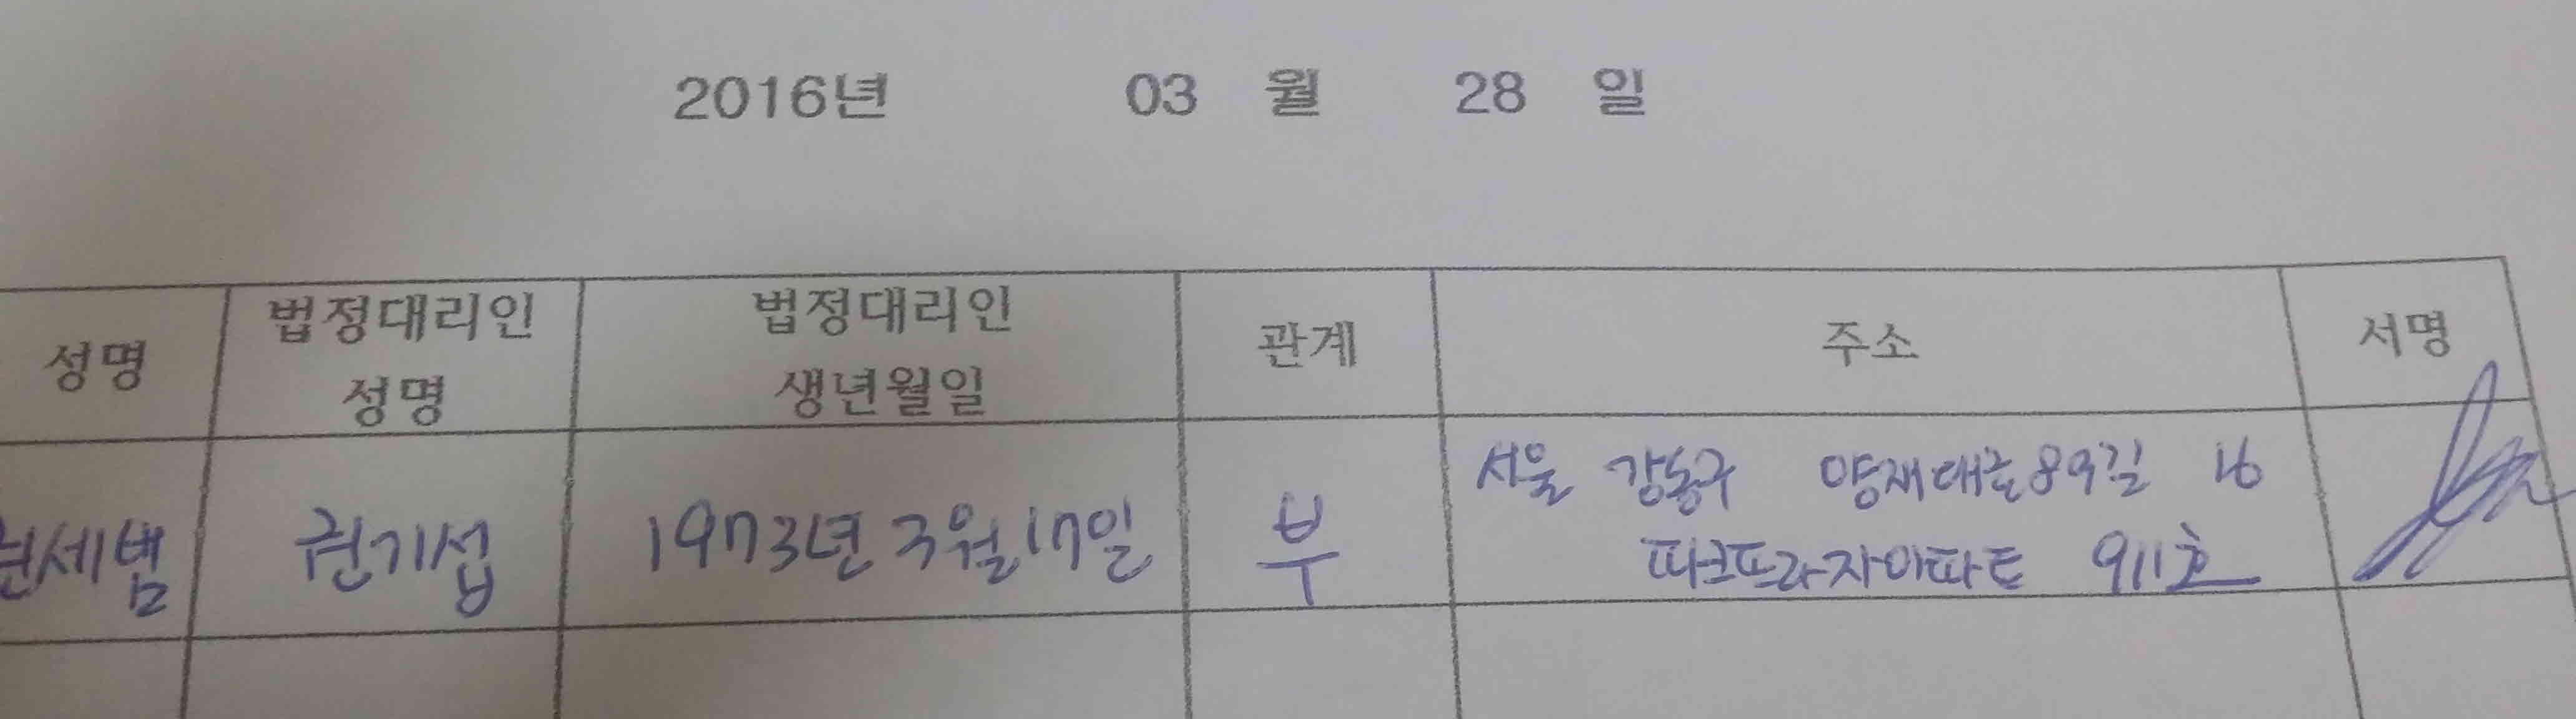 2016년 03 월 28 일
성명 법정대리인 성명 법정대리인 생년월일 관계 주소 서명
권세범 권기섭 1973년 3월 17일 부 서울 강동구 양재대로89길 16
파크프라자아파트 911호